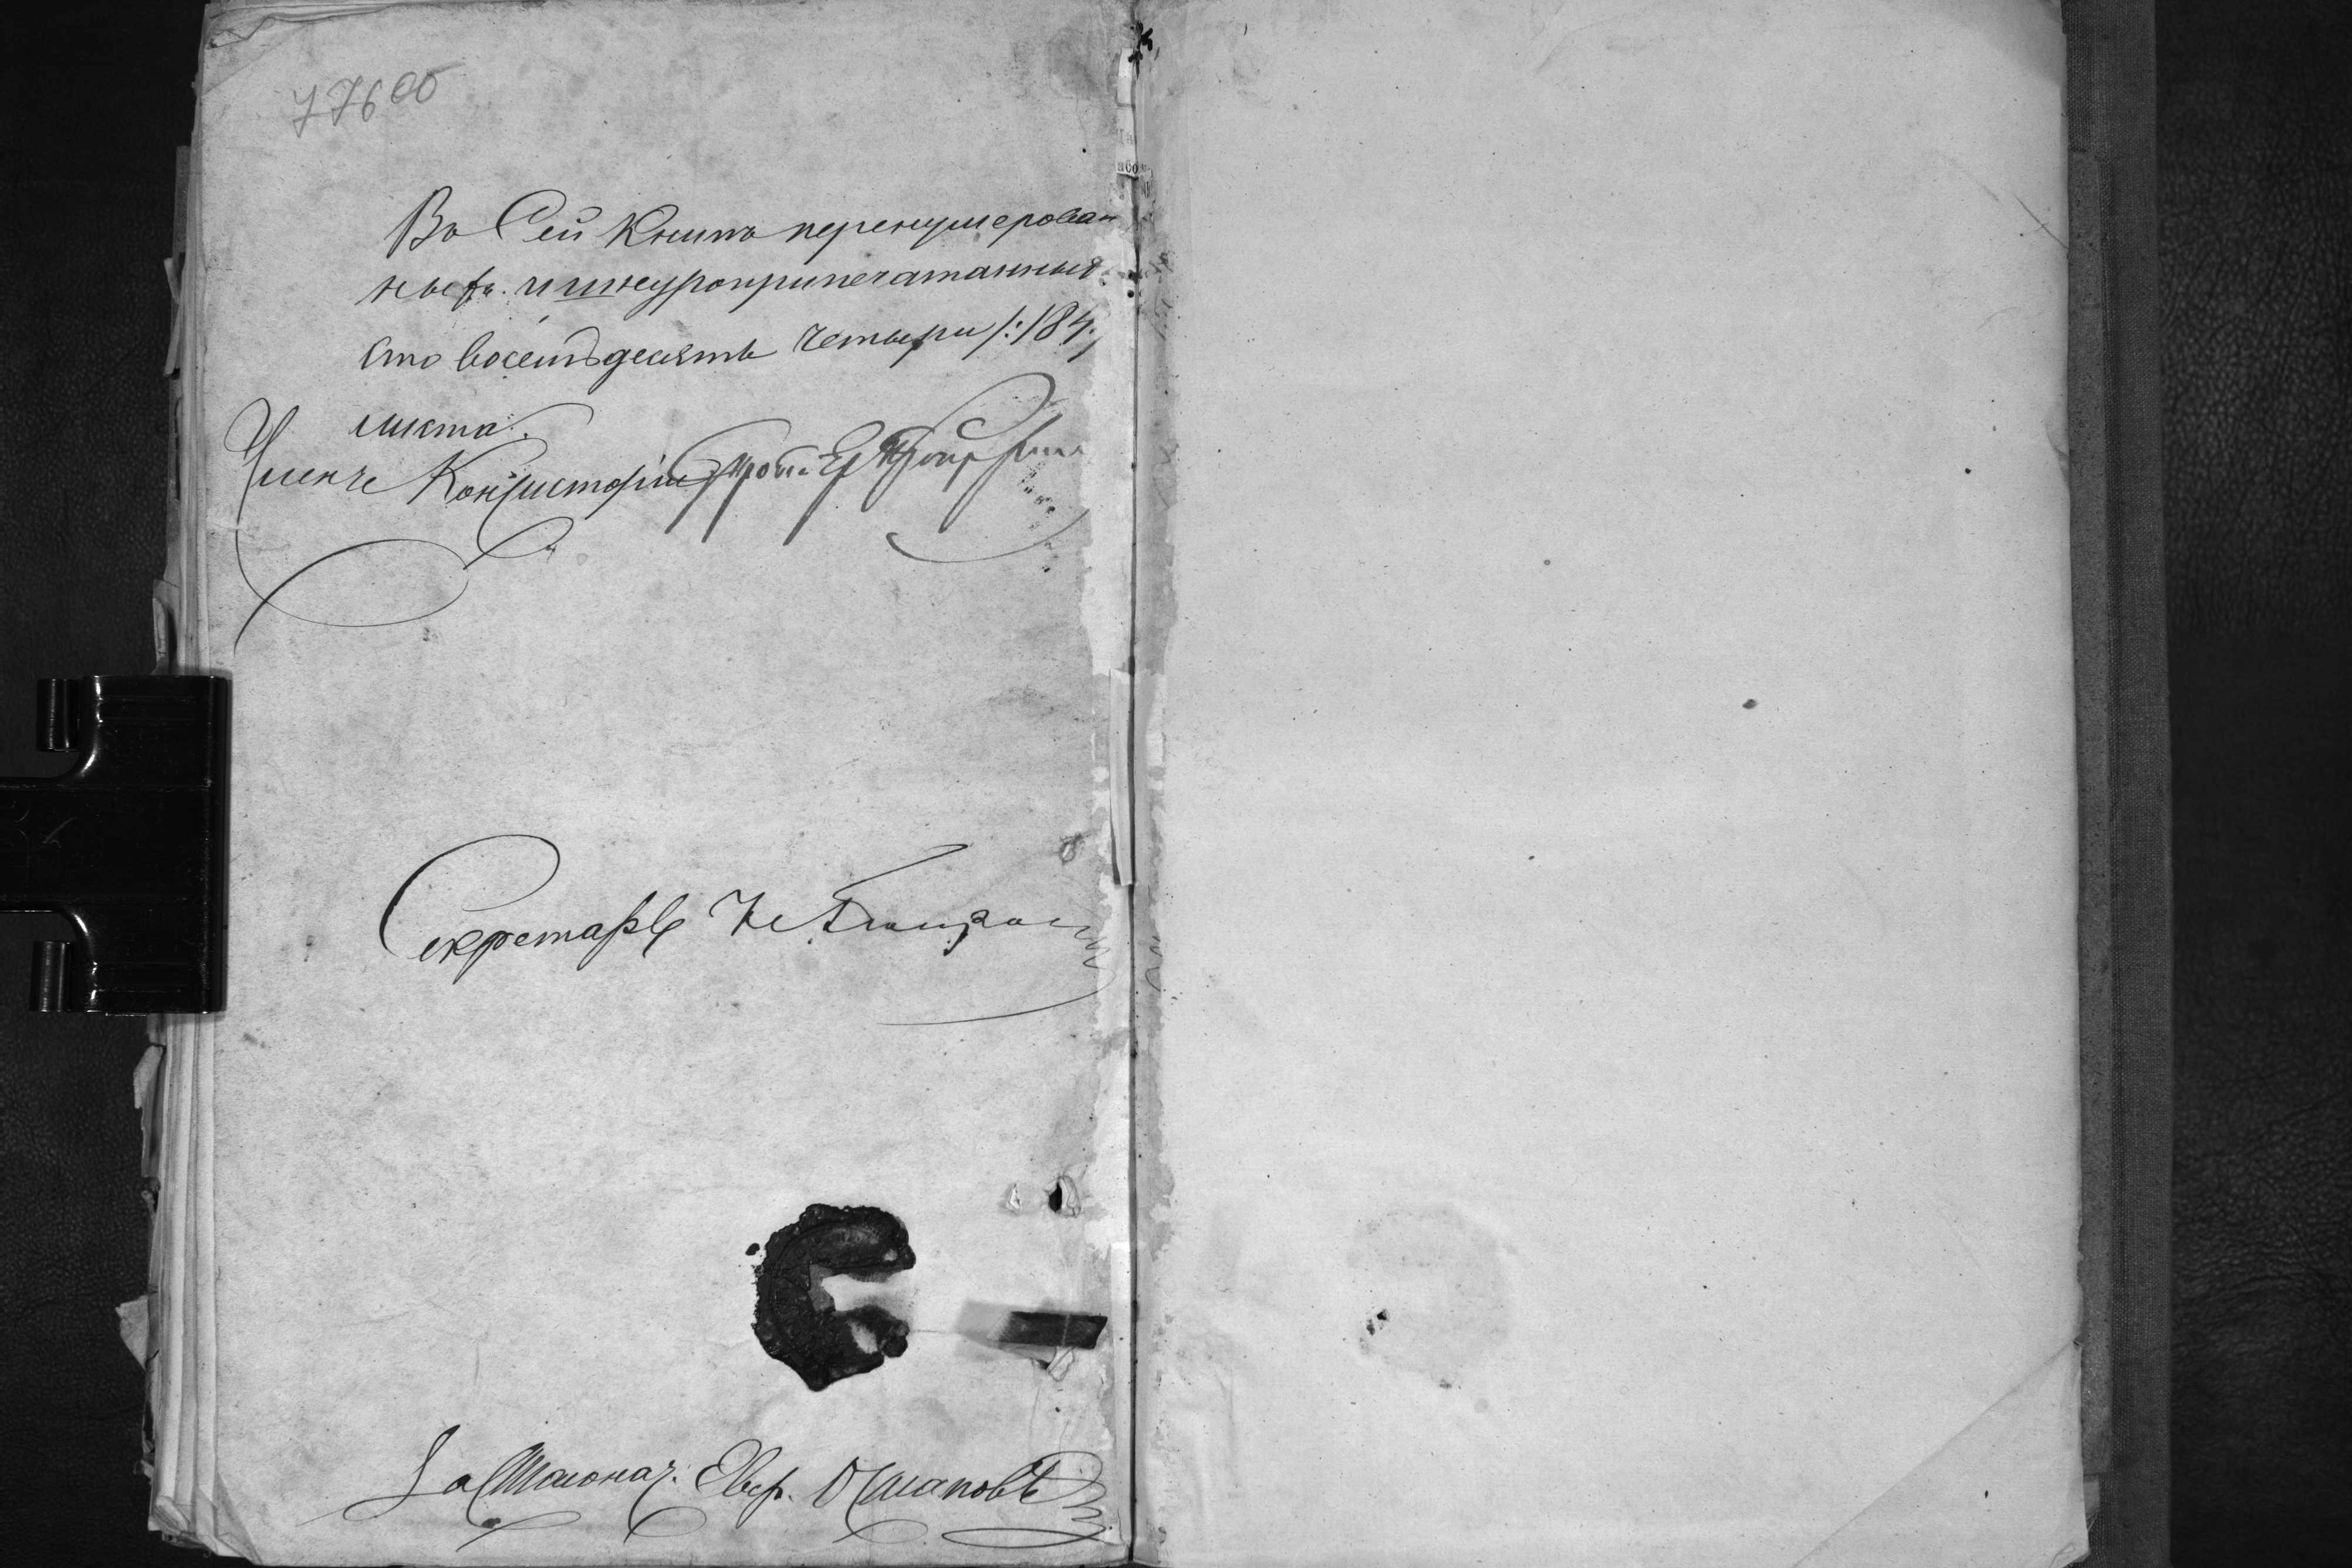 77600
Въ Сей Книгѣ перенумерован
ныхъ и шнуроприпечатанныхъ
сто восемьдесятъ четыри /:184:/
листа.
Членъ Консисторіи Прот.
Секретарь
За Столонач. Евгр. Осиповъ